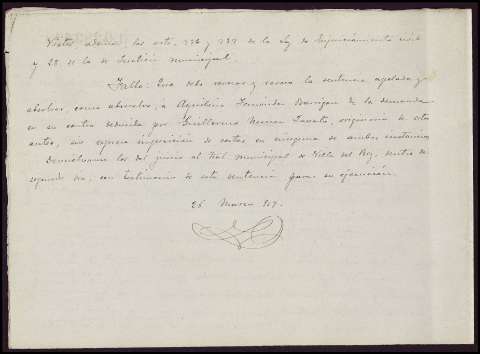 Vistos además los arts. 336 y 737 de la Ley de Enjuiciamiento civil
y 28 de la de Justicia municipal.
Fallo: Que debo revocar y revoco la sentencia apelada y
absolver, como absuelvo, a Aquilino Fernández Barrigón de la demanda
en su contra deducida por Guillermo origen de estos
autos, sin expresa imposición de costas en ninguna de ambas instancias
Devuélvanse los del juicio al Tral municipal de Villa del Rey, dentro de
segundo día, con testimonio de esta sentencia para su ejecución.
26 Marzo 917.